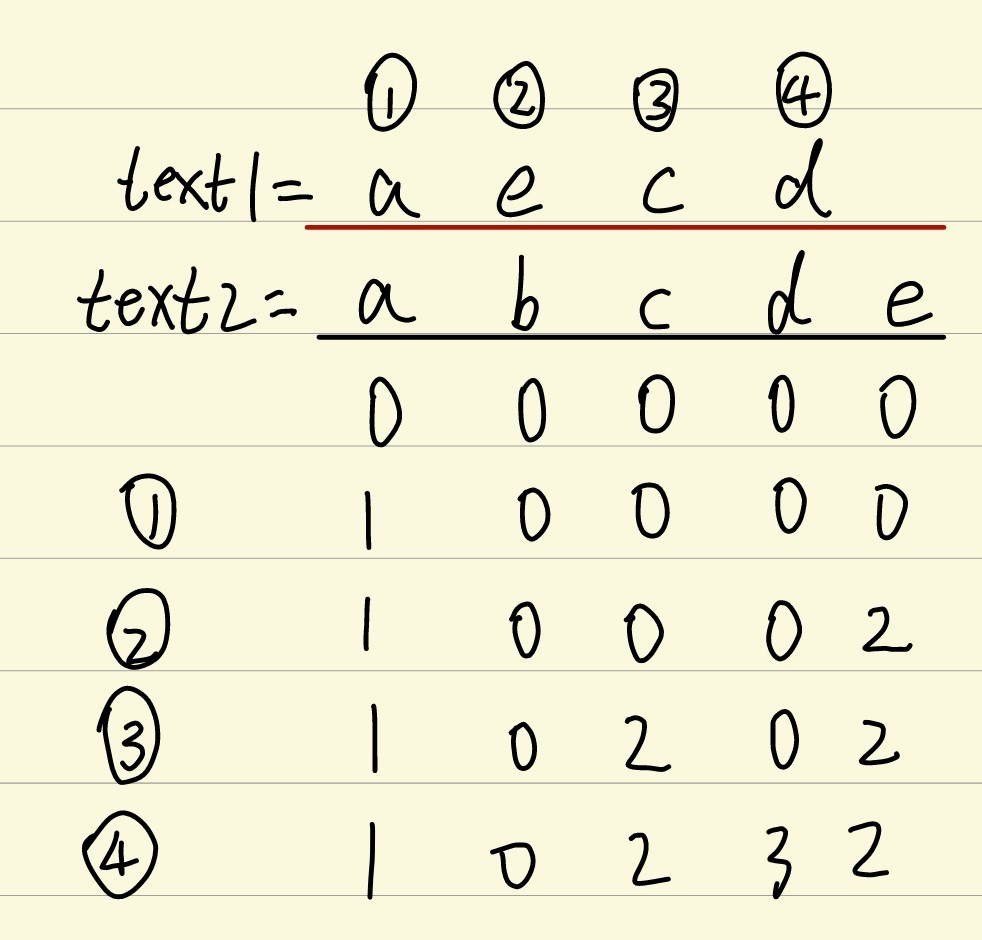 ① ② ③ ④
text1= a e c d
text2= a b c d e
0 0 0 0 0
① 1 0 0 0 0
② 1 0 0 0 2
③ 1 0 2 0 2
④ 1 0 2 3 2